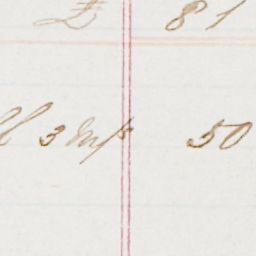 £ 81
3 m/s 50